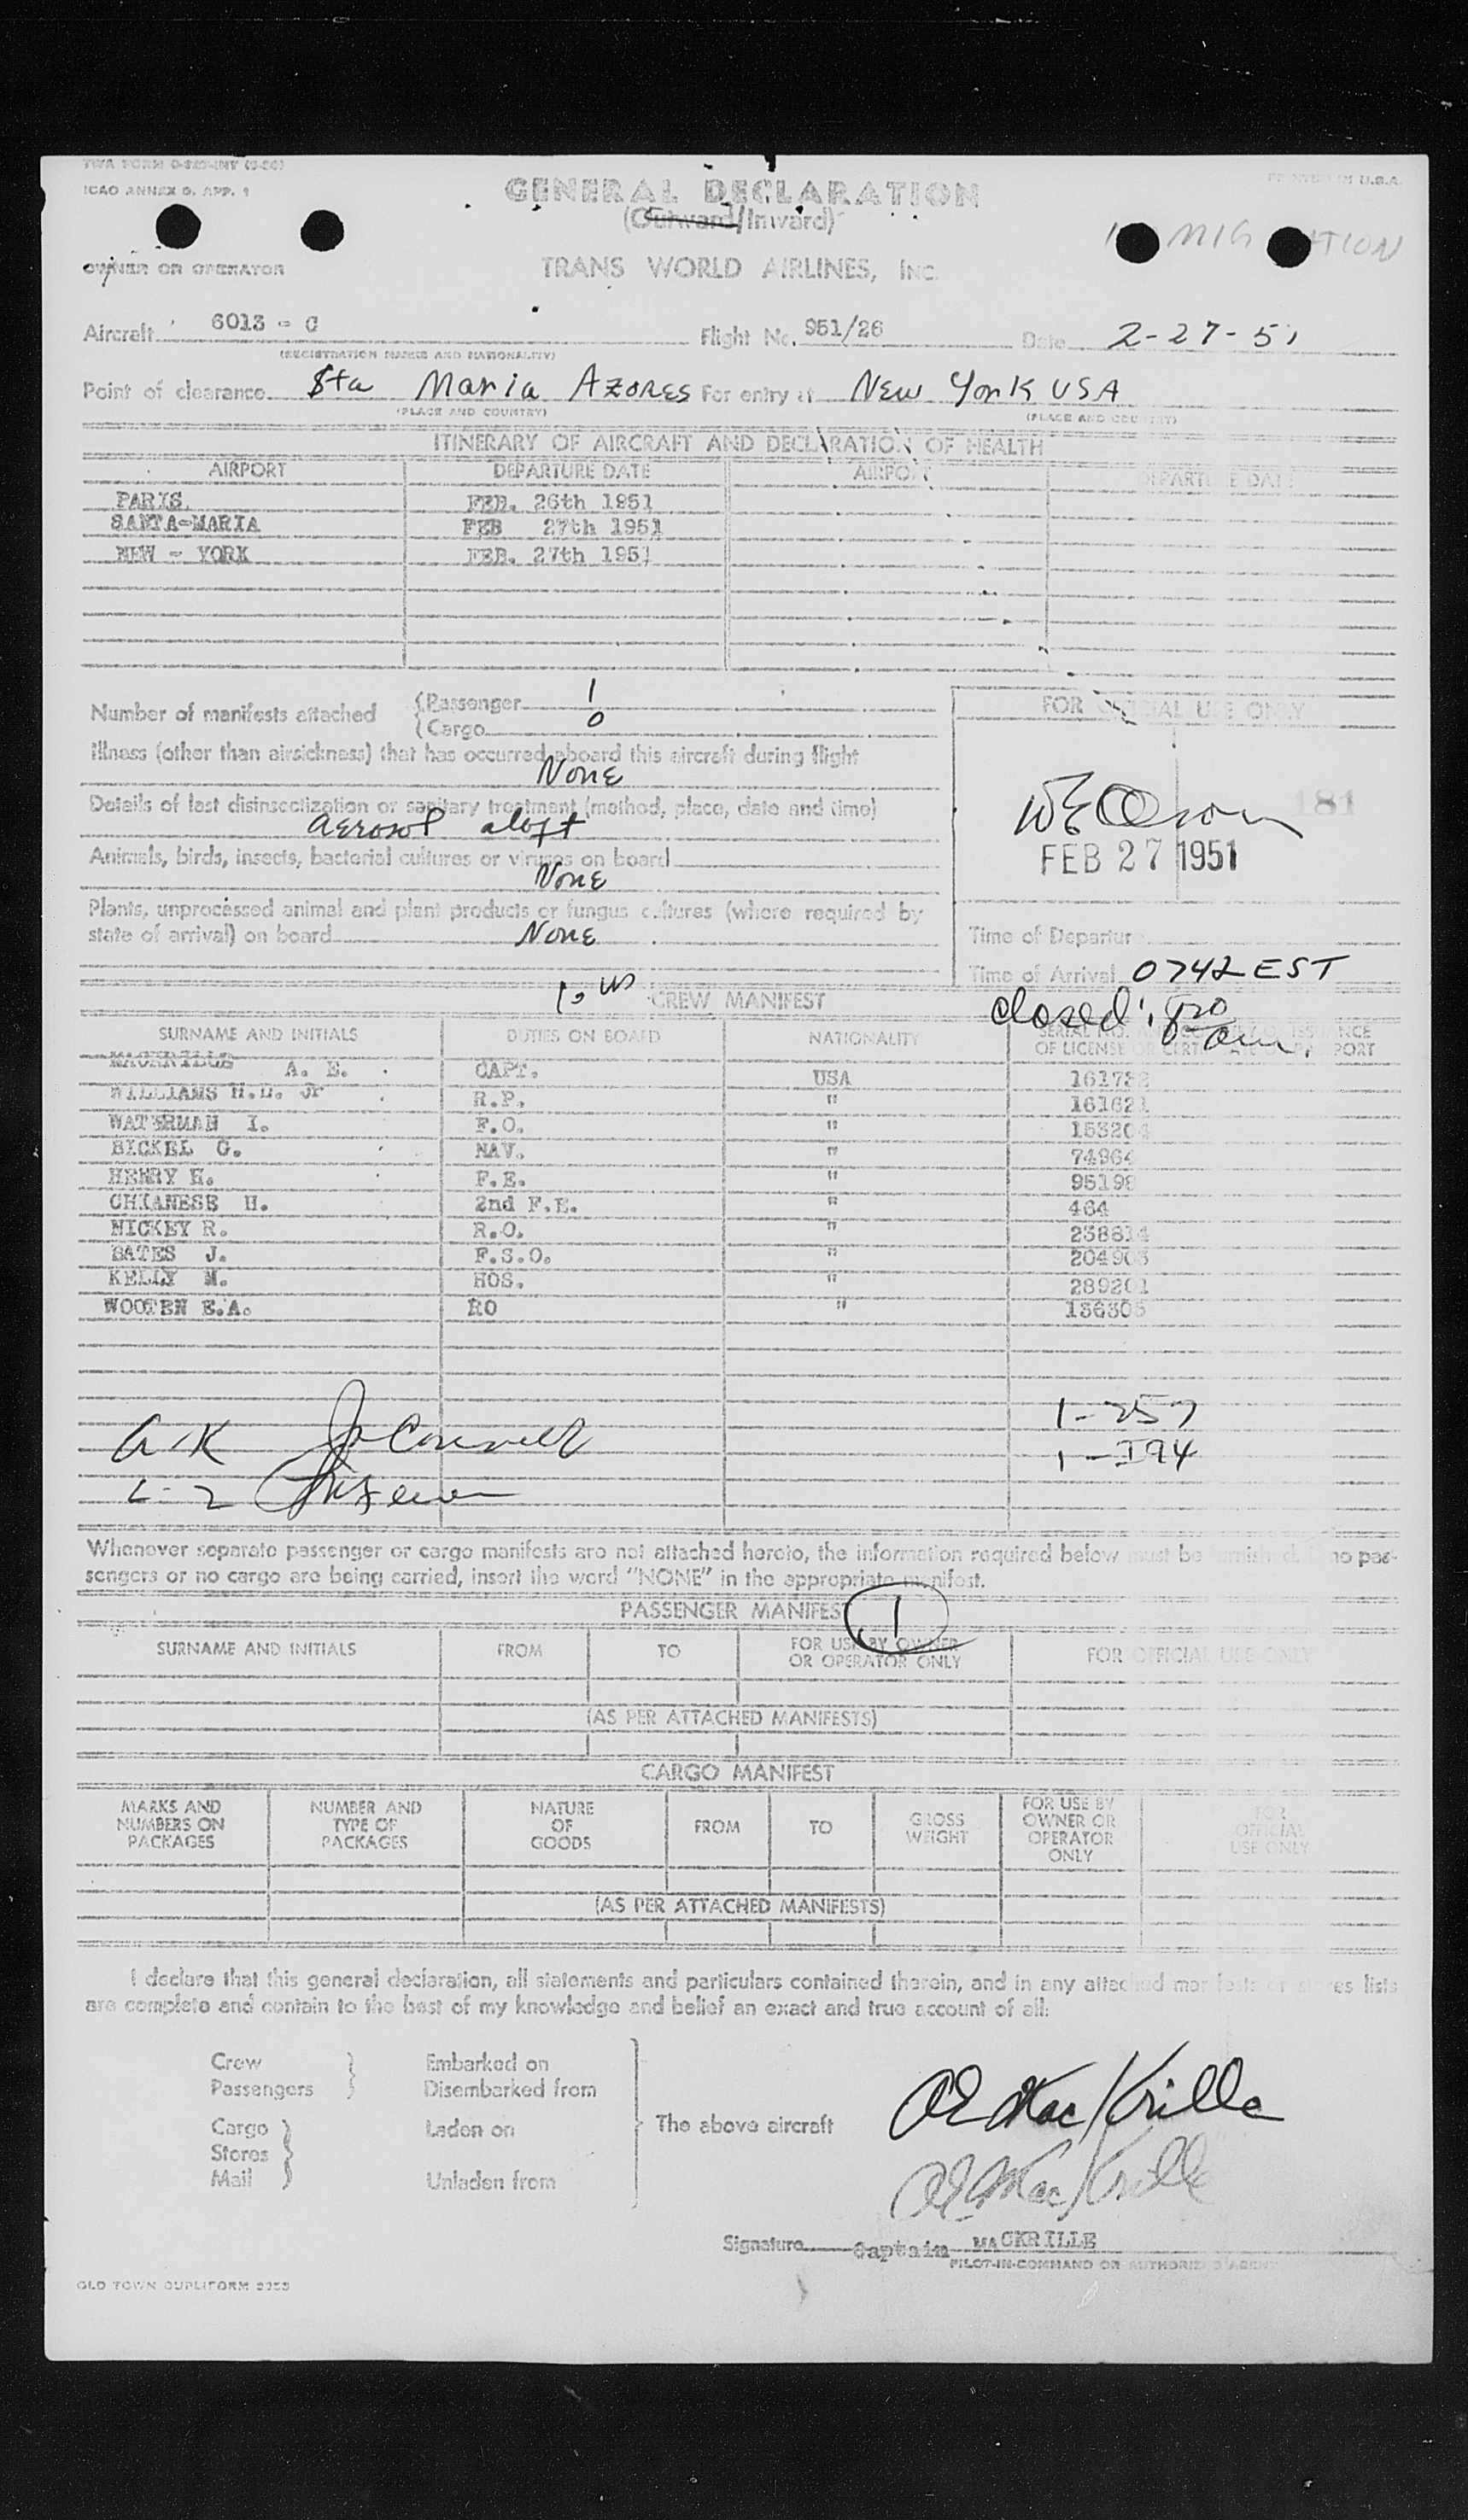 TWA FORM
ICAO ANNEX 9. APP. 1
GENERAL DECLARATION
(Outward/Inward)
IN U.S.A.
OWNER OR OPERATOR
TRANS WORLD AIRLINES, INC.
Aircraft 6013 - C Flight No. 951/26 Date 2-27-51
(REGISTRATION MARKS AND NATIONALITY)
Point of clearance Sta Maria AZORES For entry at NEW YORK USA
(PLACE AND COUNTRY) (PLACE AND COUNTRY)
ITINERARY OF AIRCRAFT AND DECLARATION OF HEALTH
AIRPORT DEPARTURE DATE AIRPORT DEPARTURE DATE
PARIS. FEB. 26th 1951
SANTA-MARIA FEB 27th 1951
NEW - YORK FEB. 27th 1951
Number of manifests attached {Passenger 1
{Cargo 0
FOR OFFICIAL USE ONLY
Illness (other than airsickness) that has occurred aboard this aircraft during flight
None
Details of last disinsectization or sanitary treatment (method, place, date and time)
aerosol aloft
181
FEB 27 1951
Animals, birds, insects, bacterial cultures or viruses on board
None
Plants, unprocessed animal and plant products or fungus cultures (where required by
state of arrival) on board None
Time of Departur
Time of Arrival 0742 EST
closed:
CREW MANIFEST
SURNAME AND INITIALS DUTIES ON BOARD NATIONALITY
MACKRILLE A. E. CAPT. USA
WILLIAMS H.L. Jr R.P. "
WATERMAN I. F.O. "
BICKEL G. NAV. "
HENRY H. F.E. "
CHIANESE H. 2nd F.E. " 464
HICKEY R. R.O. " 238814
BATES J. F.S.O. "
KELLY M. HOS. " 289201
WOOTEN E.A. RO "
1-257
1-I94
Whenever separate passenger or cargo manifests are not attached hereto, the information required below must be furnished. no pas-
sengers or no cargo are being carried, insert the word "NONE" in the appropriate manifest.
PASSENGER MANIFES 1
SURNAME AND INITIALS FROM TO FOR USE BY OWNER OR OPERATOR ONLY FOR OFFICIAL USE ONLY
(AS PER ATTACHED MANIFESTS)
CARGO MANIFEST
MARKS AND NUMBERS ON PACKAGES NUMBER AND TYPE OF PACKAGES NATURE OF GOODS FROM TO GROSS WEIGHT FOR USE BY OWNER OR OPERATOR ONLY FOR OFFICIAL USE ONLY
(AS PER ATTACHED MANIFESTS)
I declare that this general declaration, all statements and particulars contained therein, and in any attached manifests or stores lists
are complete and contain to the best of my knowledge and belief an exact and true account of all:
Crew } Embarked on
Passengers } Disembarked from
Cargo } Laden on
The above aircraft
Stores }
Mail } Unladen from
AE MacKrille
AE MacKrille
Signature Captain MACKRILLE
PILOT-IN-COMMAND OR AUTHORIZED AGENT
OLD TOWN DUPLIFORM